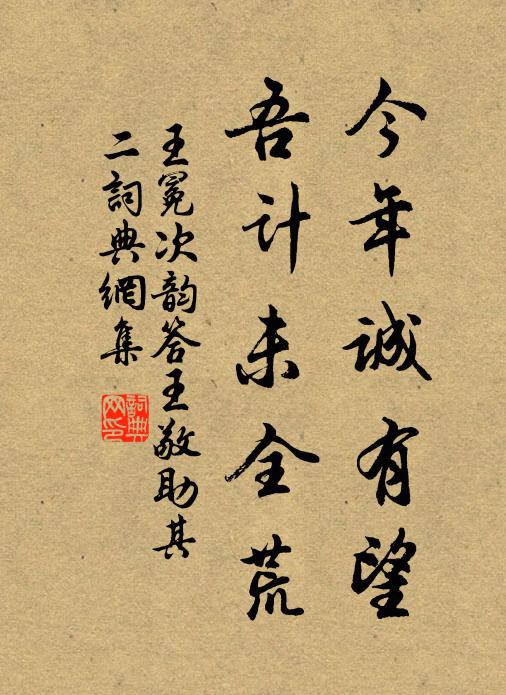 今年誠有望
吾计未全荒
王冕次韵答王敬助其
二詞典網集
詞典
网印